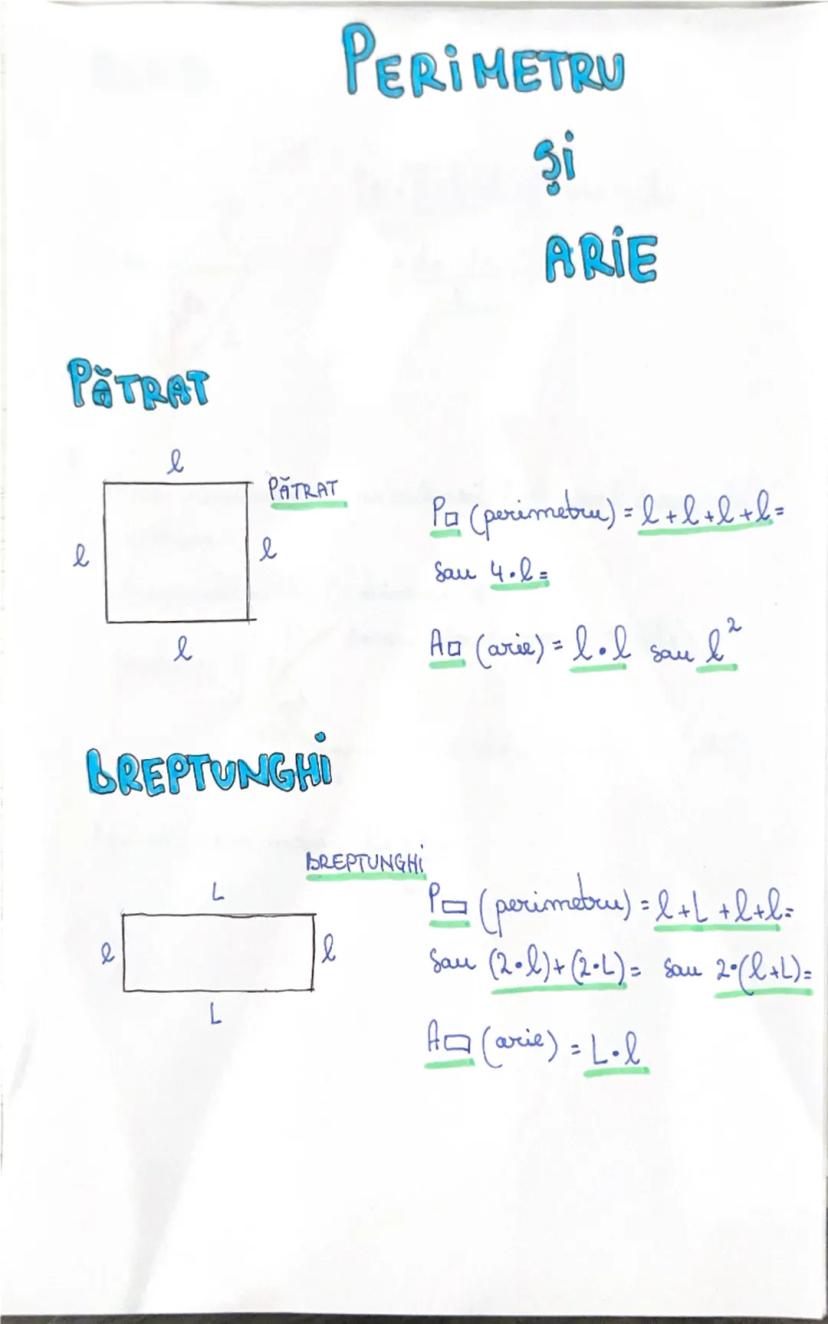 PERIMETRU
și
ARIE
PĂTRAT
l
PĂTRAT
l
l
l
P□ (perimetru) = l + l + l + l =
sau 4·l =
A□ (arie) = l·l sau l²
DREPTUNGHI
DREPTUNGHI
L
l
l
L
P▭ (perimetru) = l + L + l + l =
sau (2·l) + (2·L) = sau 2·(l+L) =
A▭ (arie) = L·l